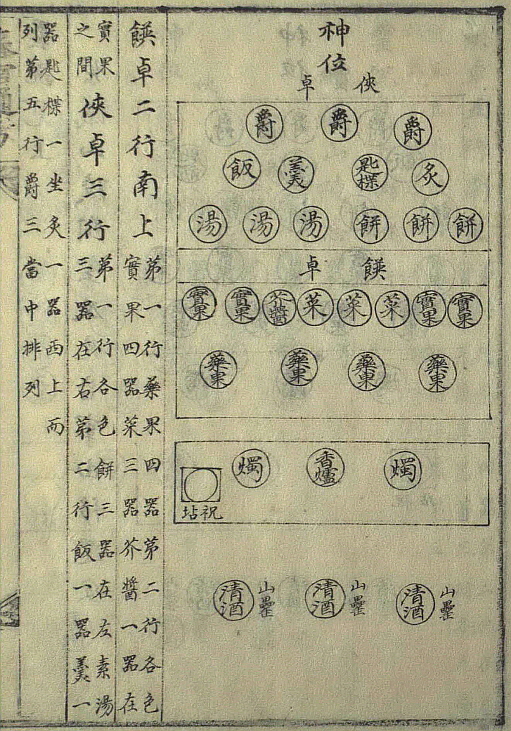 神位
俠卓
爵 爵 爵
炙 匙楪 羹 飯
餠 餠 餠 湯 湯 湯
饌卓
實果 實果 菜 菜 菜 芥醬 實果 實果
藥果 藥果 藥果 藥果
燭 香爐 燭
祝坫
山罍 清酒 山罍 清酒 山罍 清酒
饌卓二行南上
第一行藥果四器第二行各色
實果四器菜三器芥醬一器在
實果
之間
俠卓三行
第一行各色餠三器在左素湯
三器在右第二行飯一器羹一
器匙楪一坐炙一器西上而
列第五行爵三當中排列